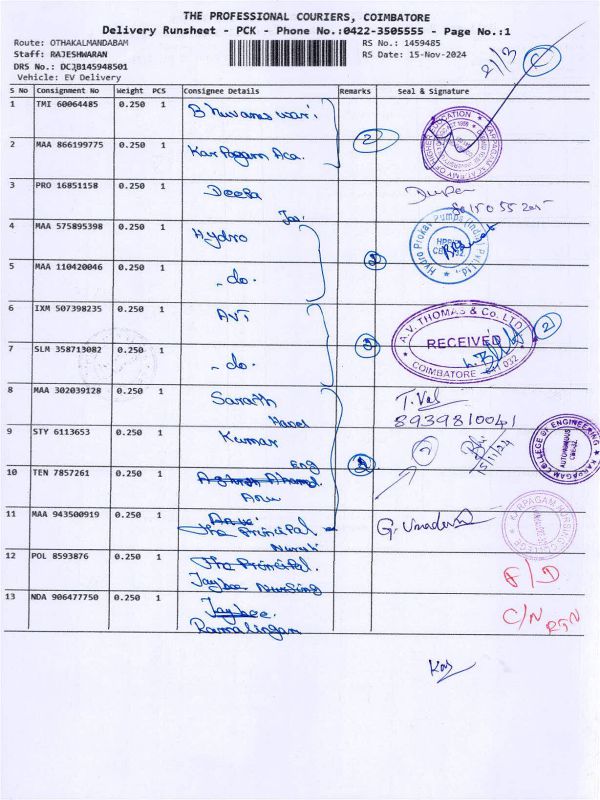 THE PROFESSIONAL COURIERS, COIMBATORE
Delivery Runsheet - PCK - Phone No.:0422-3505555 - Page No.:1
Route: OTHAKALMANDABAM
RS No.: 1459485
Staff: RAJESHWARAN
RS Date: 15-Nov-2024
DRS No.: DCJB145948501
Vehicle: EV Delivery
S No Consignment No Weight PCS Consignee Details Remarks Seal & Signature
1 TMI 60064485 0.250 1 Bhuvaneswari.
2 MAA 866199775 0.250 1 Karpagam Aca. 2
3 PRO 16851158 0.250 1 Deepa
4 MAA 575895398 0.250 1 Hydro
5 MAA 110420046 0.250 1 - do -
6 IXM 507398235 0.250 1 AVT
A.V. THOMAS & Co. LTD.
RECEIVED
COIMBATORE - 641 032
2
7 SLM 358713082 0.250 1 - do -
8 MAA 302039128 0.250 1 Sarath
T. Val
8939810041
9 STY 6113653 0.250 1 Kumar
Eng
KARPAGAM COLLEGE OF ENGINEERING
AUTONOMOUS
10 TEN 7857261 0.250 1
11 MAA 943500919 0.250 1
The Principal
KARPAGAM NURSING COLLEGE
12 POL 8593876 0.250 1 The Principal.
Jaybee Nursing
13 NDA 906477750 0.250 1 Jaybee.
Ramalingam
C/N RTN